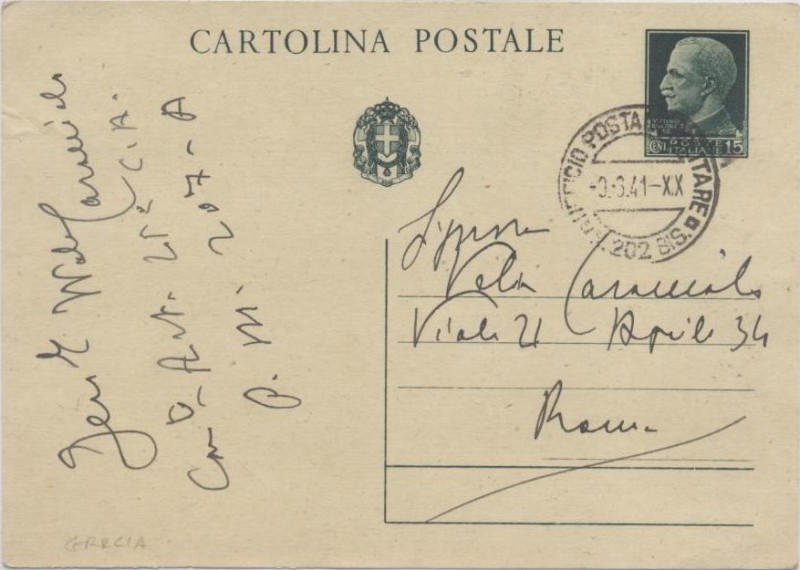 CARTOLINA POSTALE
CENT 15
UFFICIO POSTALE MILITARE
-9.6.41-XX
202 BIS.
Signora
Velia Caracciolo
Viale 21 Aprile 34
Roma
Caracciolo
Art. 21ª C.A.
P. M. 207-A
GRECIA